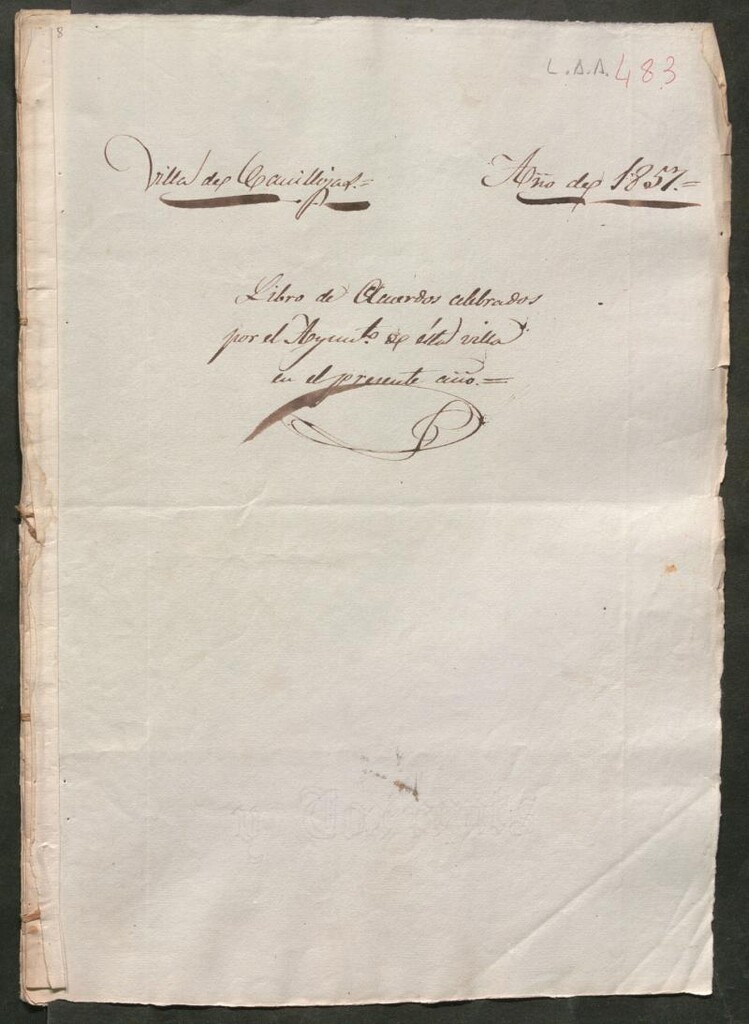 8
L.A.A. 483
Villa de Canillejas.= Año de 1857.=
Libro de Acuerdos celebrados
por el Ayunto. de ésta villa
en el presente año.=